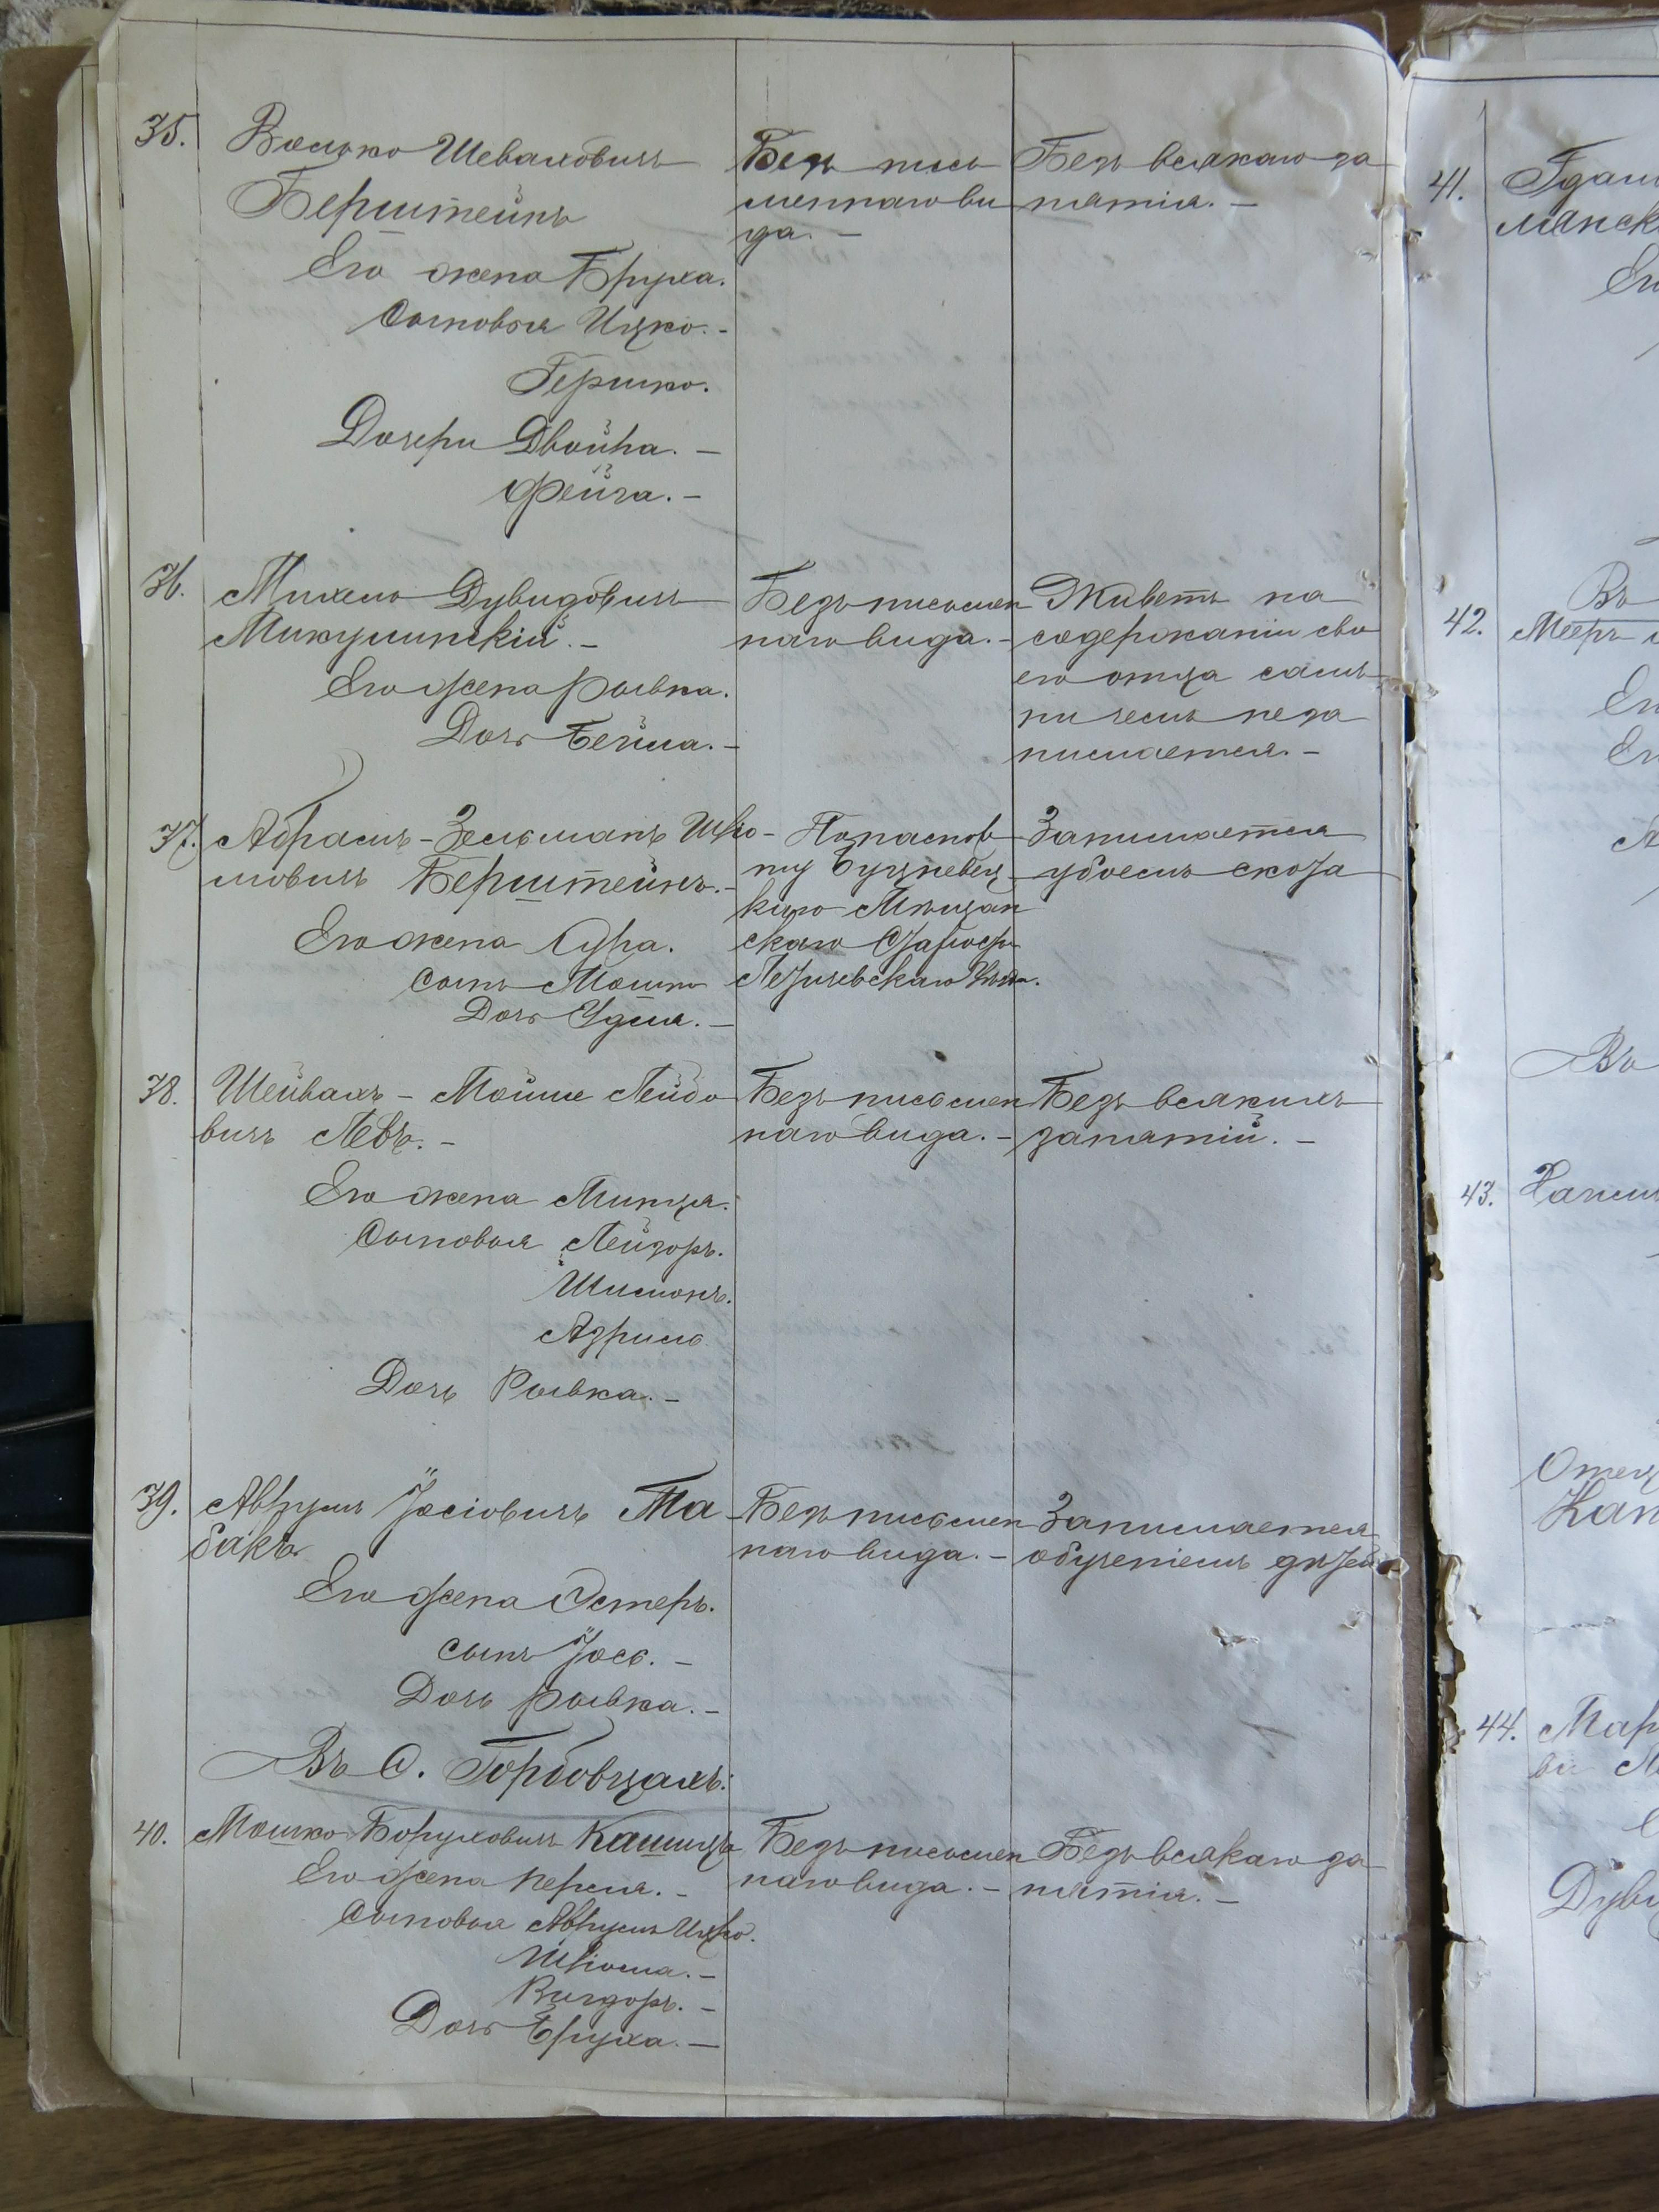 35. Волько Шеваховичъ
Берштейнъ
Его жена Бруха.
Сыновья Ицко. -
Гершко.
Дочери Двойра. -
Фейга. -
Безъ пись
меннаго ви
да. -
Безъ всякаго за
нятія. -
36. Михель Дувидовичъ
Микулинскій. -
Его жена Рывка.
Дочь Бейла. -
Безъ письмен
наго вида. -
Живетъ на
содержаніи сво
его отца самъ
ни чемъ не за
нимается. -
37. Абрамъ - Зельманъ
мовичъ Берштейнъ. -
Его жена Сура.
Сынъ Мошко
Дочь Удля. -
По паспор
ту Буцневец
каго Мѣщан
скаго Старосты
Летичевскаго
Занимается
убоемъ скота
38. Шейвахъ - Мойше Лейзо
вичъ Левъ. -
Его жена Минця.
Сыновья Лейзоръ.
Шимонъ.
Азриль
Дочь Рывка. -
Безъ письмен
наго вида. -
Безъ всякихъ
занятій. -
39. Аврумъ Іосіовичъ Та
бакъ
Его жена Эстеръ.
Сынъ Іось. -
Дочь Рывка. -
Безъ письмен
наго вида. -
Занимается
обученіемъ дѣтей
Въ С. Горбовцахъ:
40. Мошко Боруховичъ
Его жена Перля. -
Сыновья Аврумъ Ицко.
Шлома. -
Вигдоръ. -
Дочь Бруха. -
Безъ письмен
наго вида. -
Безъ всякаго за
нятія. -
41.
42. Мееръ
Въ
43.
44.